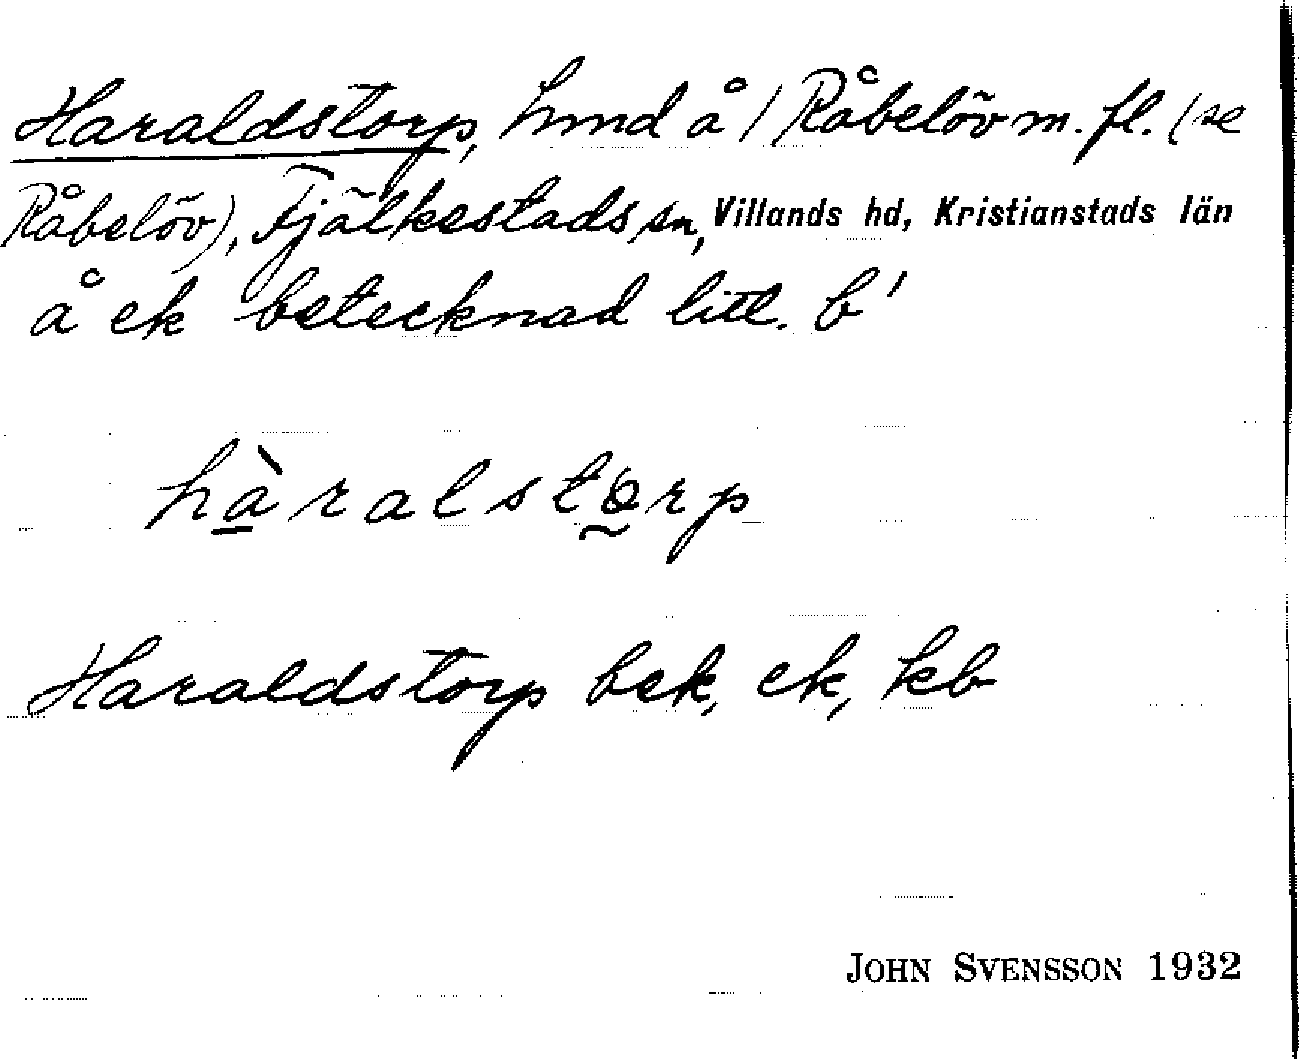 Haraldstorp, hmd å 1 Råbelöv m. fl. (se
Råbelöv), Fjälkestads sn, Villands hd, Kristianstads län
å ek betecknad litt. b'
hàralstorp
Haraldstorp bek, ek, kb
JOHN SVENSSON 1932